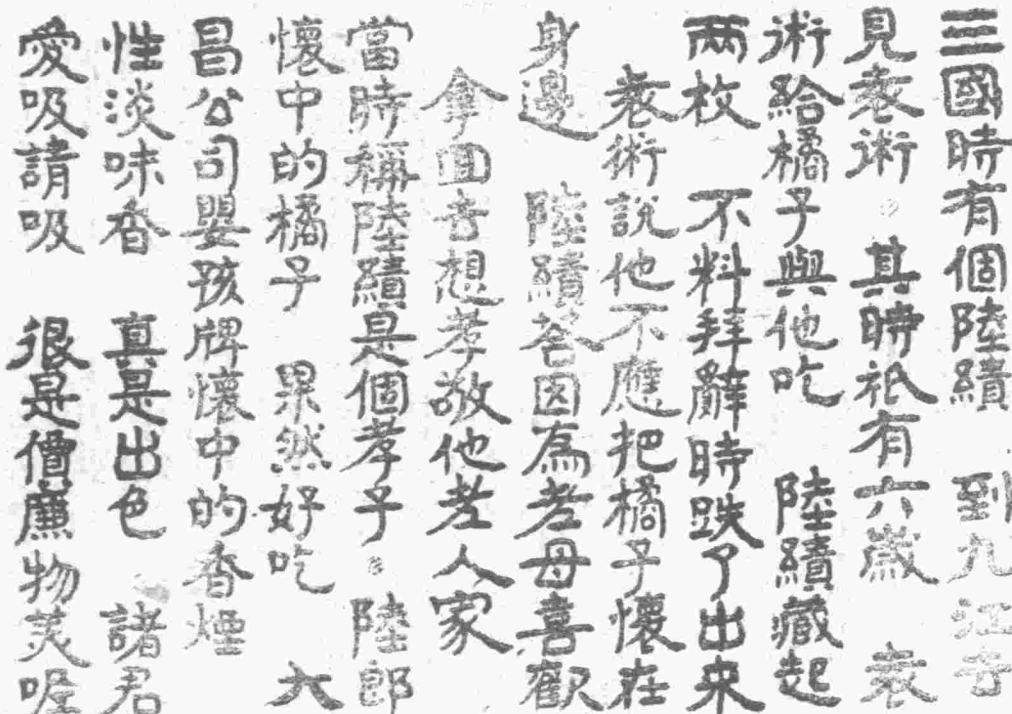 三國時有個陸績　到九江去
見袁術。其時祇有六歲　袁
術給橘子與他吃　陸績藏起
兩枚　不料拜辭時跌了出來
袁術說他不應把橘子懷在
身邊　陸績答因為老母喜歡
拿回去想孝敬他老人家
當時稱陸績是個孝子。陸郎
懷中的橘子　果然好吃　大
昌公司嬰孩牌懷中的香煙
性淡味香　真是出色　諸君
愛吸請吸　很是價廉物美喔